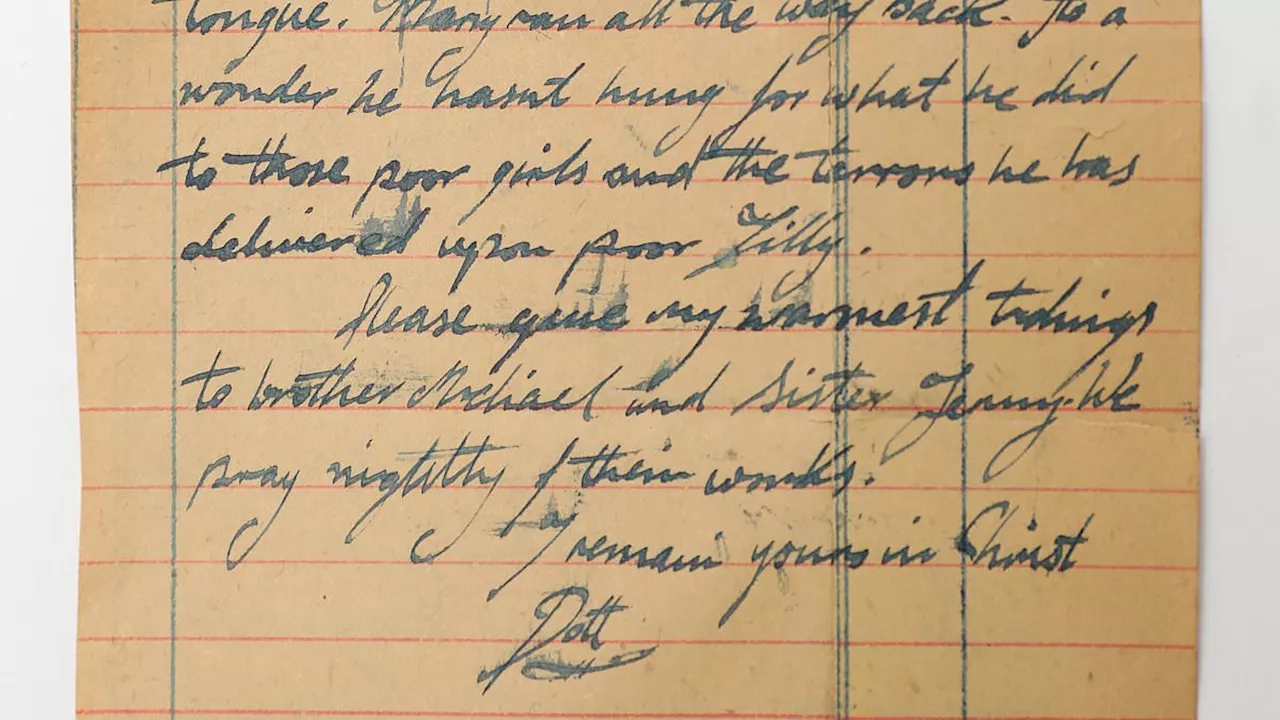 tongue. Mary ran all the way back. Its a
wonder he hasnt hung for what he did
to those poor girls and the terrors he has
delivered upon poor Tilly.
Please give my warmest tidings
to brother Michael and Sister Jenny. We
pray nightly f their works.
I remain yours in Christ
Dott